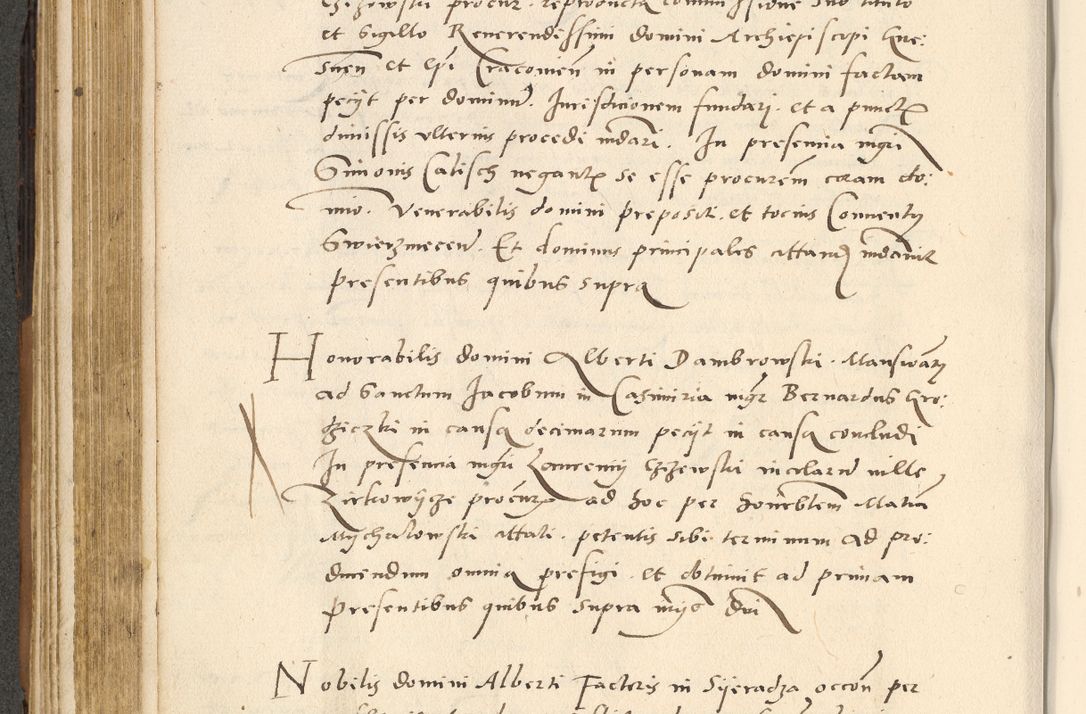 Czizowski procur. reproducta commissione sub titulo
et Sigillo Reverendissimi domini Archiepiscopi Gne:
snen et Epi Cracovien in personam domini factam
peciit per dominum. Jurisdicionem fundari. et a
dimissis ulterius procedi mdari. In presencia mgri
Simonis Calisch negantis se esse procurem coram do:
mino. Venerabilis domini prepositi. et tocius Conventus
Swierzinecen. Et dominus principales
presentibus quibus supra
Honorabilis domini Alberti Dambrowski. Mansionarii
ad Sanctum Jacobum in Casimiria mgr Bernardus Gro:
dziczki in causa decimarum peciit in causa concludi
In presencia mgri Laurencii Czizewski incolarum ville
Zirkowycze procuris ad hoc per honorbtem Matiam
Mychalowski attati. petentis sibi terminum ad pro:
ducendum omnia prefigi. et obtinuit ad primam
presentibus quibus supra
Nobilis domini Alberti Factoris in Syeradza occon per